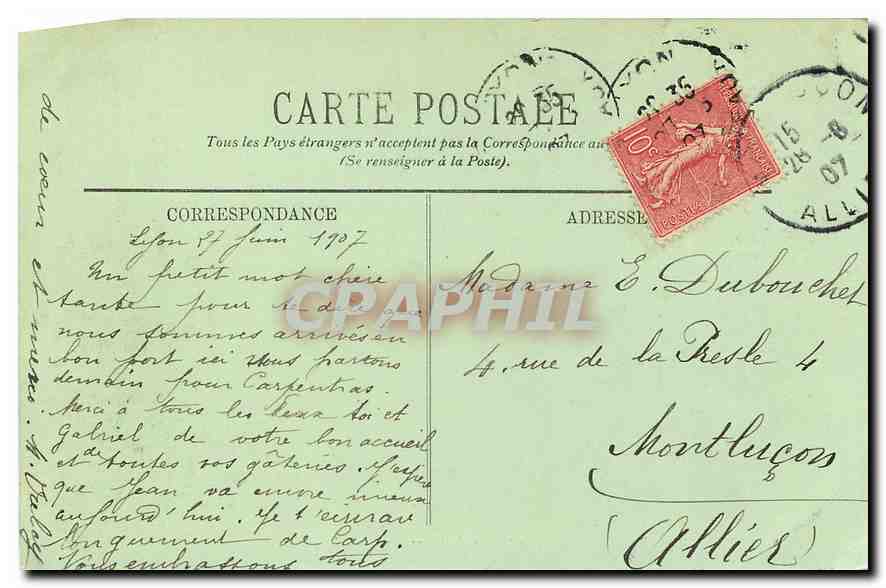 CARTE POSTALE
Tous les Pays étrangers n'acceptent pas la Correspondance au
(Se renseigner à la Poste).
CORRESPONDANCE
ADRESSE
Lyon 27 juin 1907
Un petit mot chère
tante pour te dire que
nous sommes arrivés en
bon port ici nous partons
demain pour Carpentras.
Merci à tous les deux toi et
Gabriel de votre bon accueil
et de toutes vos gâteries. J'espère
que Jean va encore mieux
aujourd'hui. Je t'écrirai
longuement de Carp.
Nous embrassons tous
de cœur et merci.
Madame E. Dubouchet
4, rue de la Presle 4
Montluçon
(Allier)
10c
POSTES
15
28-6
07
ALLI
CPAPHIL